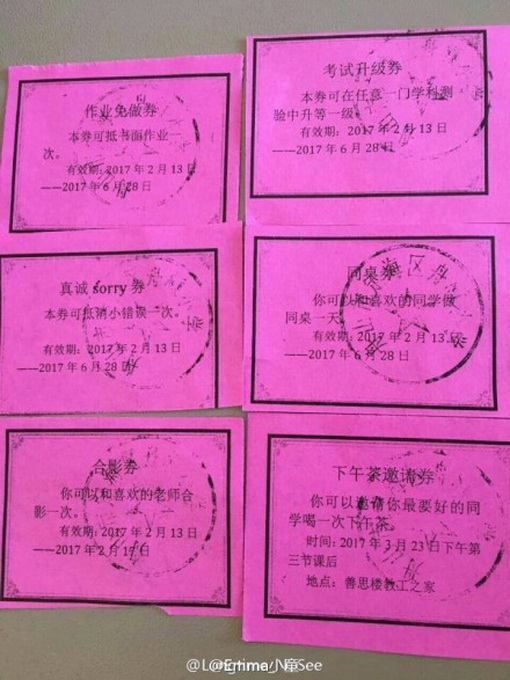 作业免做券
本券可抵书面作业一
次。
有效期:2017年2月13日
——2017年6月28日
考试升级券
本券可在任意一门学科测
验中升等一级。
有效期:2017年2月13日
——2017年6月28日
真诚sorry券
本券可抵销小错误一次。
有效期:2017年2月13日
——2017年6月28日
同桌券
你可以和喜欢的同学做
同桌一天。
有效期:2017年2月13日
——2017年6月28日
合影券
你可以和喜欢的老师合
影一次。
有效期:2017年2月13日
——2017年2月17日
下午茶邀请券
你可以邀请你最要好的同
学喝一次下午茶。
时间:2017年3月23日下午第
三节课后
地点:善思楼教工之家